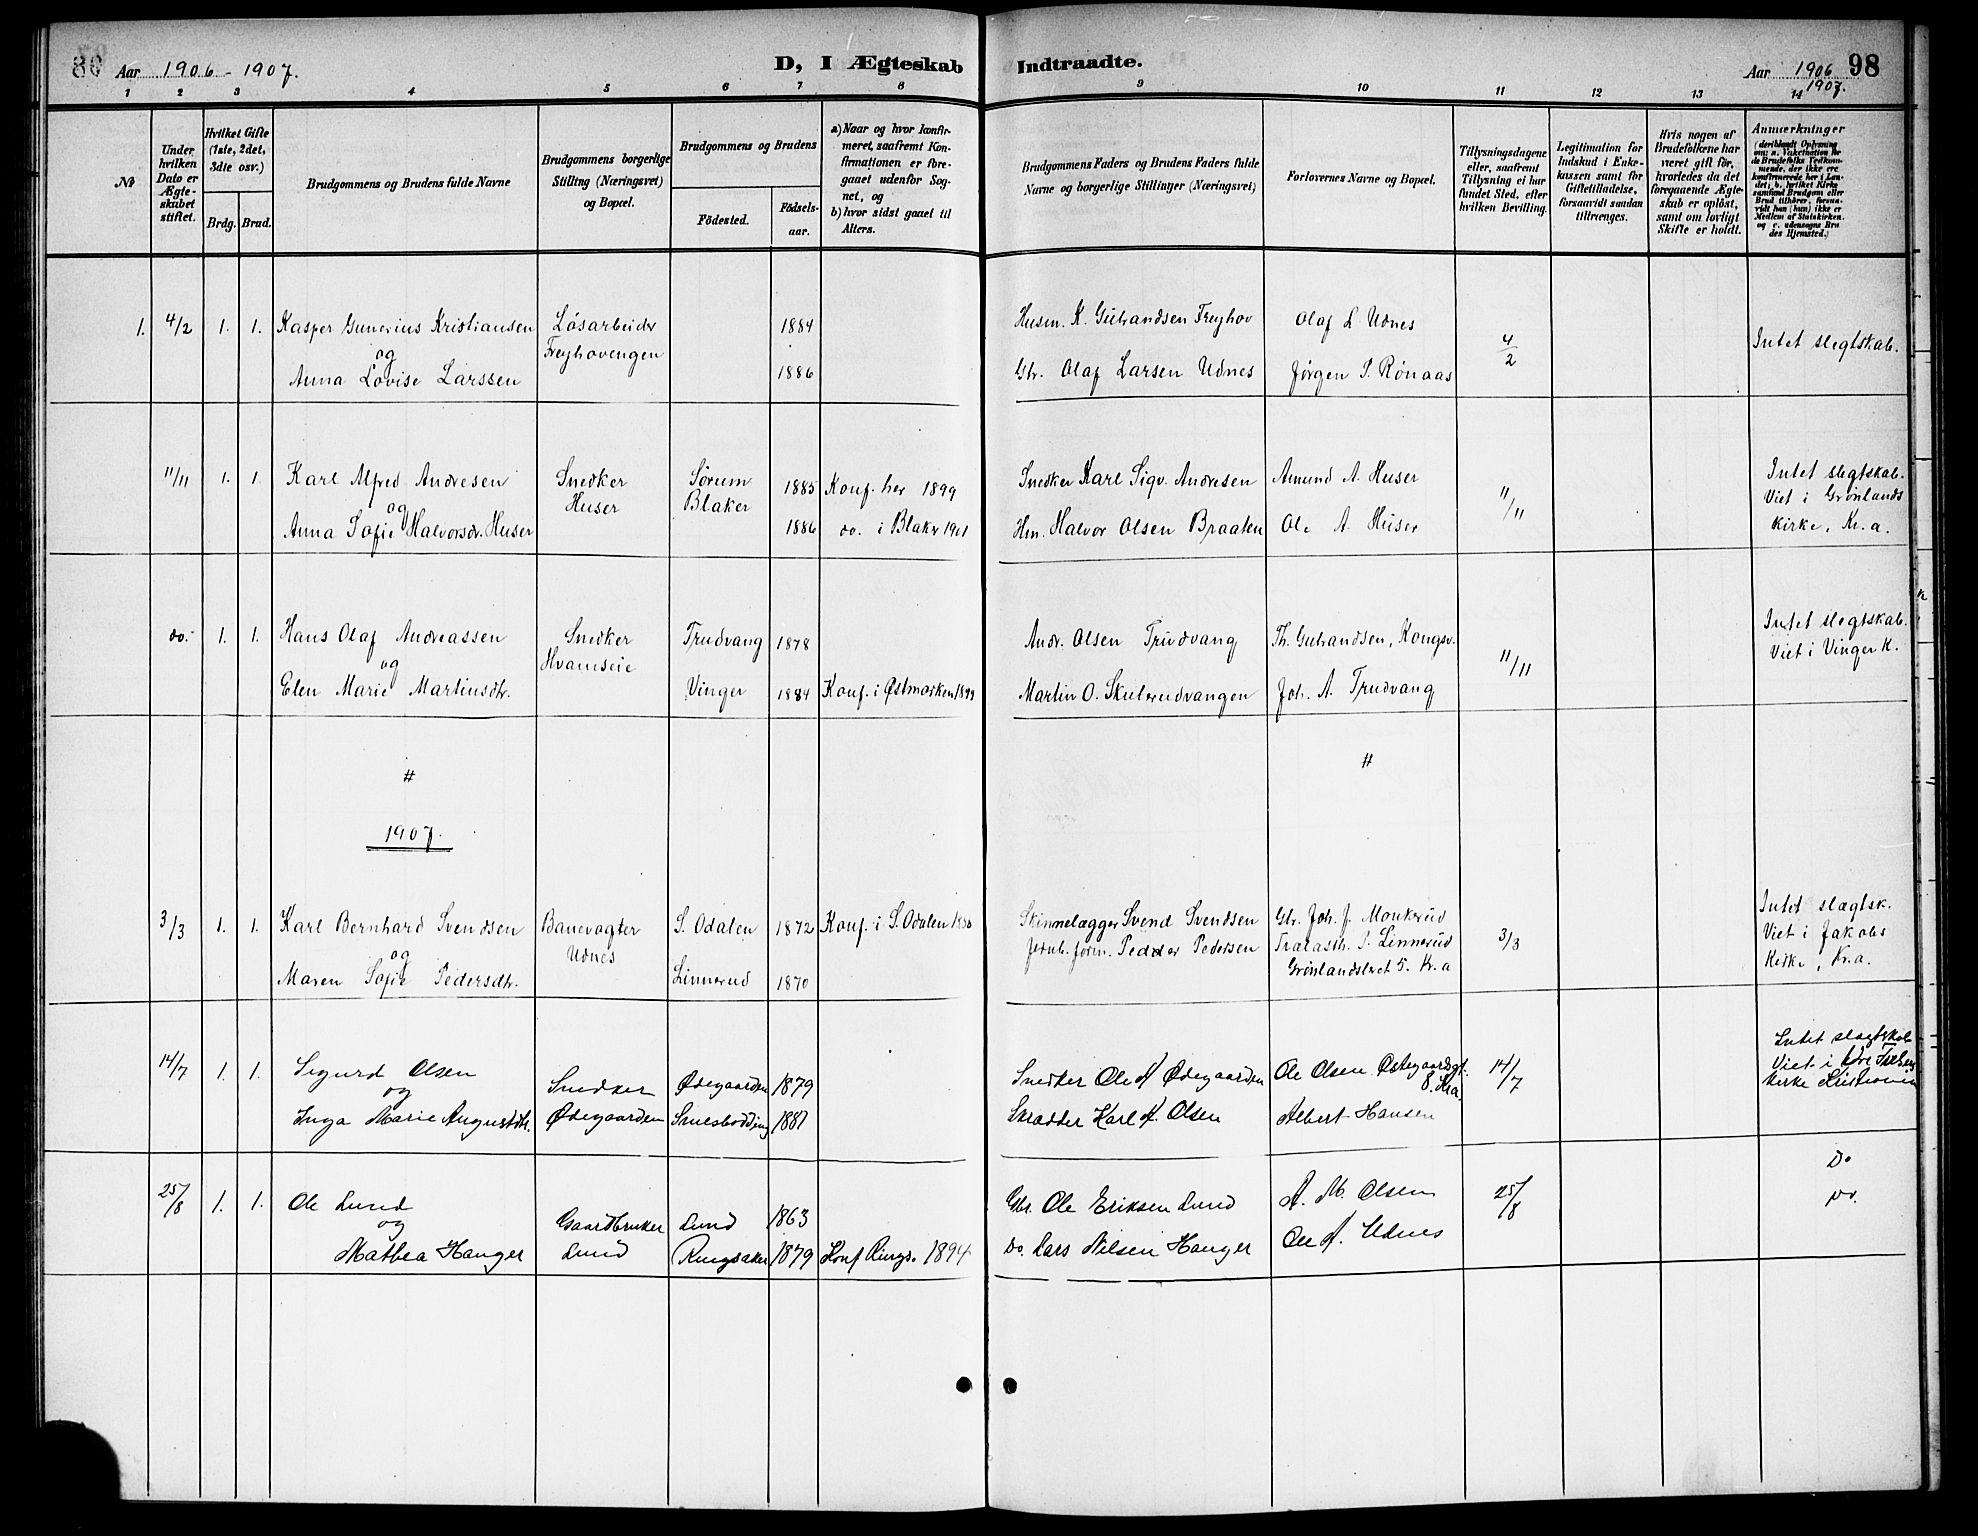 Aar 1906 - 1907.
D, I Ægteskab
Indtraadte.
Aar 1906 98
1907.
1 2 3 4 5 6 7 8 9 10 11 12 13 14
№
Under hvilken Dato er Ægteskabet stiftet.
Hvilket Gifte (1ste, 2det, 3die osv.)
Brdg. Brud.
Brudgommens og Brudens fulde Navne
Brudgommens borgerlige Stilling (Næringsvei) og Bopæl.
Brudgommens og Brudens
Födested.
Födsels-aar.
a) Naar og hvor konfirmeret, saafremt Konfirmationen er foregaaet udenfor Sognet, og
b) hvor sidst gaaet til Alters.
Brudgommens Faders og Brudens Faders fulde Navne og borgerlige Stillinger (Næringsvei)
Forlovernes Navne og Bopæl.
Tillysningsdagene eller, saafremt Tillysning ei har fundet Sted, efter hvilken Bevilling.
Legitimation for Indskud i Enkekassen samt for Giftetilladelse, forsaavidt saadan tiltrænges.
Hvis nogen af Brudefolkene har været gift för, hvorledes da det foregaaende Ægteskab er oplöst, samt om lovligt Skifte er holdt.
Anmerkninger
(deriblandt Oplysning om: a. Vakcination for de Brudefolks Vedkommende, der ikke ere konfirmerede her i Landet; b. hvilket Kirkesamfund Brudgom eller Brud tilhörer, forsaavidt han (hun) ikke er Medlem af Statskirken. og c. udensogns Brudes Hjemsted.)
1. 4/2 1. 1. Kasper Gunerius Kristiansen Løsarbeider 1884 Husm. K. Gulbrandsen Freyhov Olaf L Udnes 4/2 Intet slegtskab.
og Freyhovengen
Anna Lovise Larssen 1886 Gbr. Olaf Larsen Udnes Jørgen P. Rønaas
11/11 1. 1. Karl Alfred Andresen Snedker Sørum 1885 Konf. her 1899 Snedker Karl Sigv. Andresen Amund A. Huser 11/11 Intet slegtskab.
og Huser Blaker Viet i Grønlands
Anna Sofie Halvorsdr. Huser 1886 do. i Blaker 1901 Hm. Halvor Olsen Braaten Ole A. Huser Kirke, Kr.a.
do. 1. 1. Hans Olaf Andreassen Snedker Trudvang 1878 Andr. Olsen Trudvang Th. Gulbrandsen, Kongsv. 11/11 Intet slegtskab.
og Hvamseie Viet i Vinger K.
Elen Marie Martinsdtr. Vinger 1884 Konf. i Østmarken 1899 Martin O. Skulerudvangen Joh. A. Trudvang
#
#
1907.
3/3 1. 1. Karl Bernhard Svendsen Banevogter S. Odalen 1872 Konf. i S. Odalen Skinnelægger Svend Svendsen Gbr. Joh. J. Monkerud 3/3 Intet slægtsk.
og Udnes Pedder Pedersen P. Linnerud Viet i Jakobs
Maren Sofie Pedersdtr. Linnerud 1870 5. Kr.a Kirke, Kr.a.
14/7 1. 1. Sigurd Olsen Snedker Ødegaarden 1879 Snedker Ole A Ødegaarden Ole Olsen Østegaardsgt. 14/7 Intet slægtskab
og 8. Kra. Viet i
Inga Marie Augustdtr. Ødegaarden 1881 Skrædder Karl A. Olsen Albert Hansen Kirke Kristiania
25/8 1. 1. Ole Lund Gaardbruker Lund 1863 Gbr. Ole Eriksen Lund A. M. Olsen 25/8 Do
og do.
Mathea Hanger Lund Ringsaker 1879 Konf Rings. 1894 Do. Lars Nilsen Hanger Ole A. Udnes